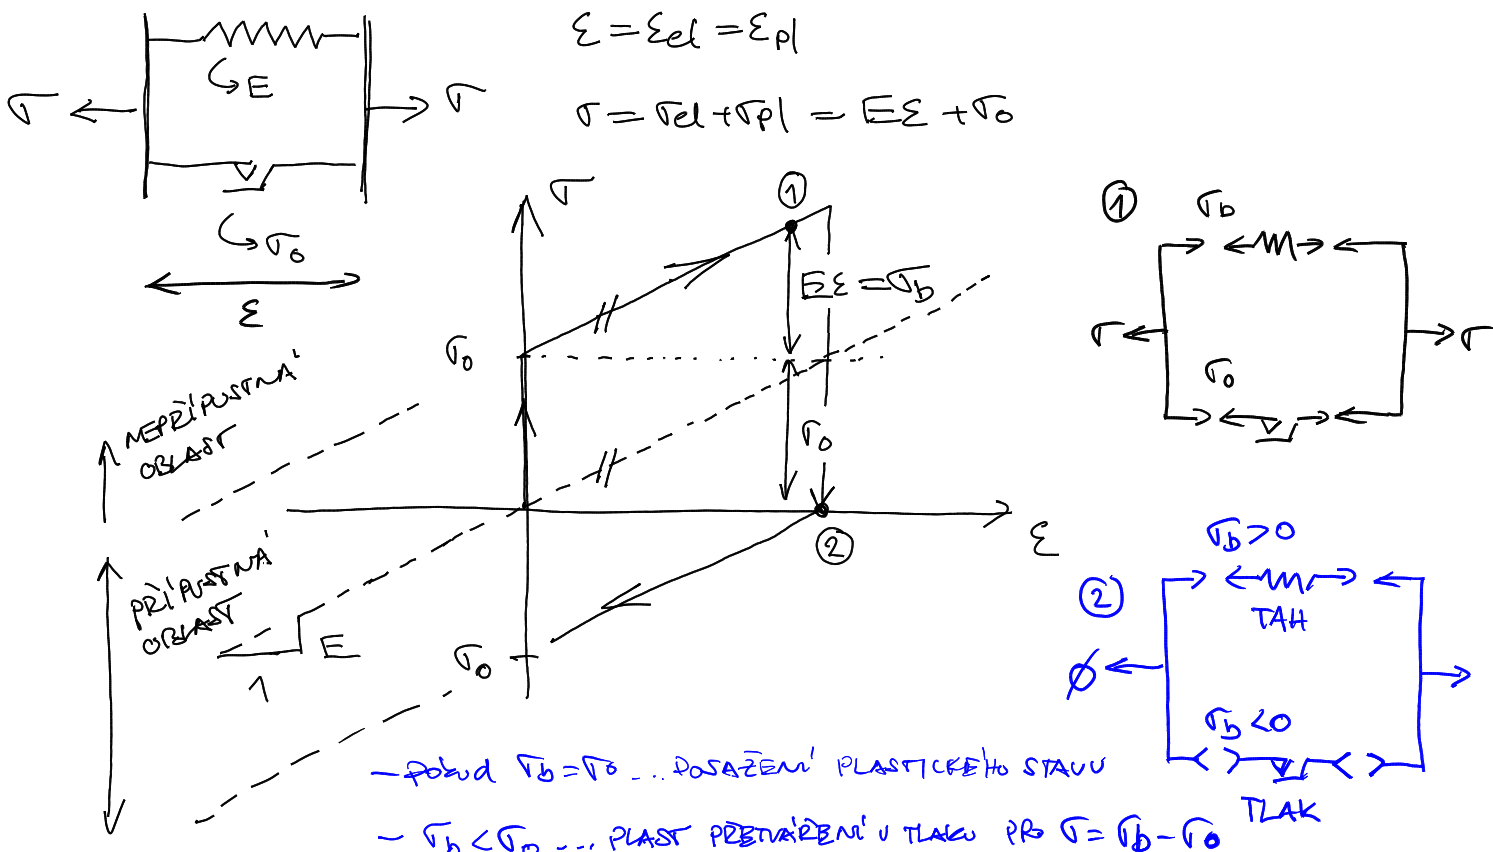 ε = εel = εpl
σ = σel + σpl = Eε + σ0
σ
E
σ
σ0
ε
σ
1
Eε = σb
σ0
NEPŘÍPUSTNÁ
OBLAST
σ0
PŘÍPUSTNÁ
OBLAST
E
1
σ0
2
ε
1
σb
σ
σ
σ0
2
σb > 0
TAH
∅
σb < 0
TLAK
- POKUD σb = σ0 ... DOSAŽENÍ PLASTICKÉHO STAVU
- σb < σ0 ... PLAST PŘETVÁŘENÍ V TLAKU PRO σ = σb - σ0